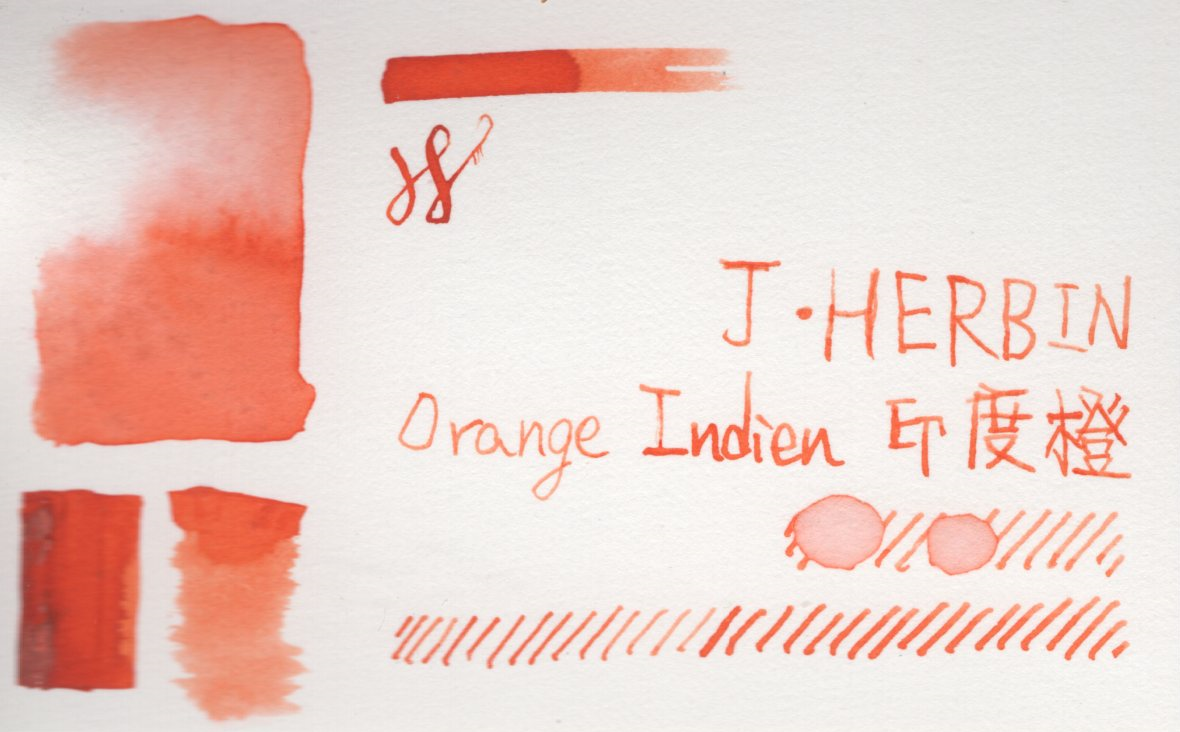 J·HERBIN
Orange Indien 印度橙